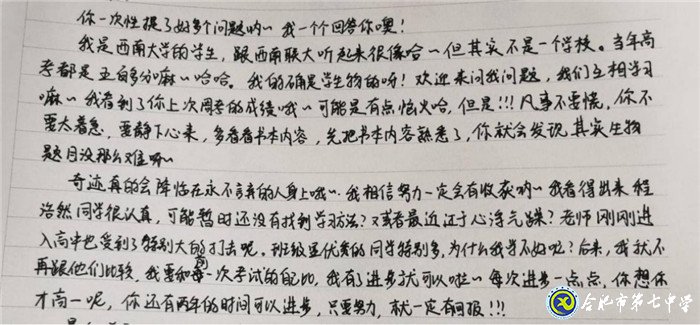 你一次性提了好多个问题哟～我一个个回答你噢！
我是西南大学的学生，跟西南联大听起来很像哈～但其实不是一个学校。当年高
考都是五百多分嘛～哈哈。我的确是学生物的呀！欢迎来问我问题，我们互相学习
嘛～我看到了你上次周考的成绩哦～可能是有点恼火哈，但是！！！凡事不要慌，你不
要太着急，要静下心来，多看看书本内容，先把书本内容熟悉了，你就会发现其实生物
题目没那么难嘛～
奇迹真的会降临在永不言弃的人身上哦～.我相信努力一定会有收获哟～我看得出来 程
浩然同学很认真，可能暂时还没有找到学习方法？又或者最近过于心浮气躁？老师刚刚进
入高中也受到了特别大的打击呢。班级里优秀的同学特别多，为什么我学不好呢？后来，我就不
再跟他们比较，我要和每一次考试的自己比，我有进步就可以啦～每次进步一点点，你想你
才高一呢，你还有两年的时间可以进步，只要努力，就一定有回报！！！
合肥市第七中学